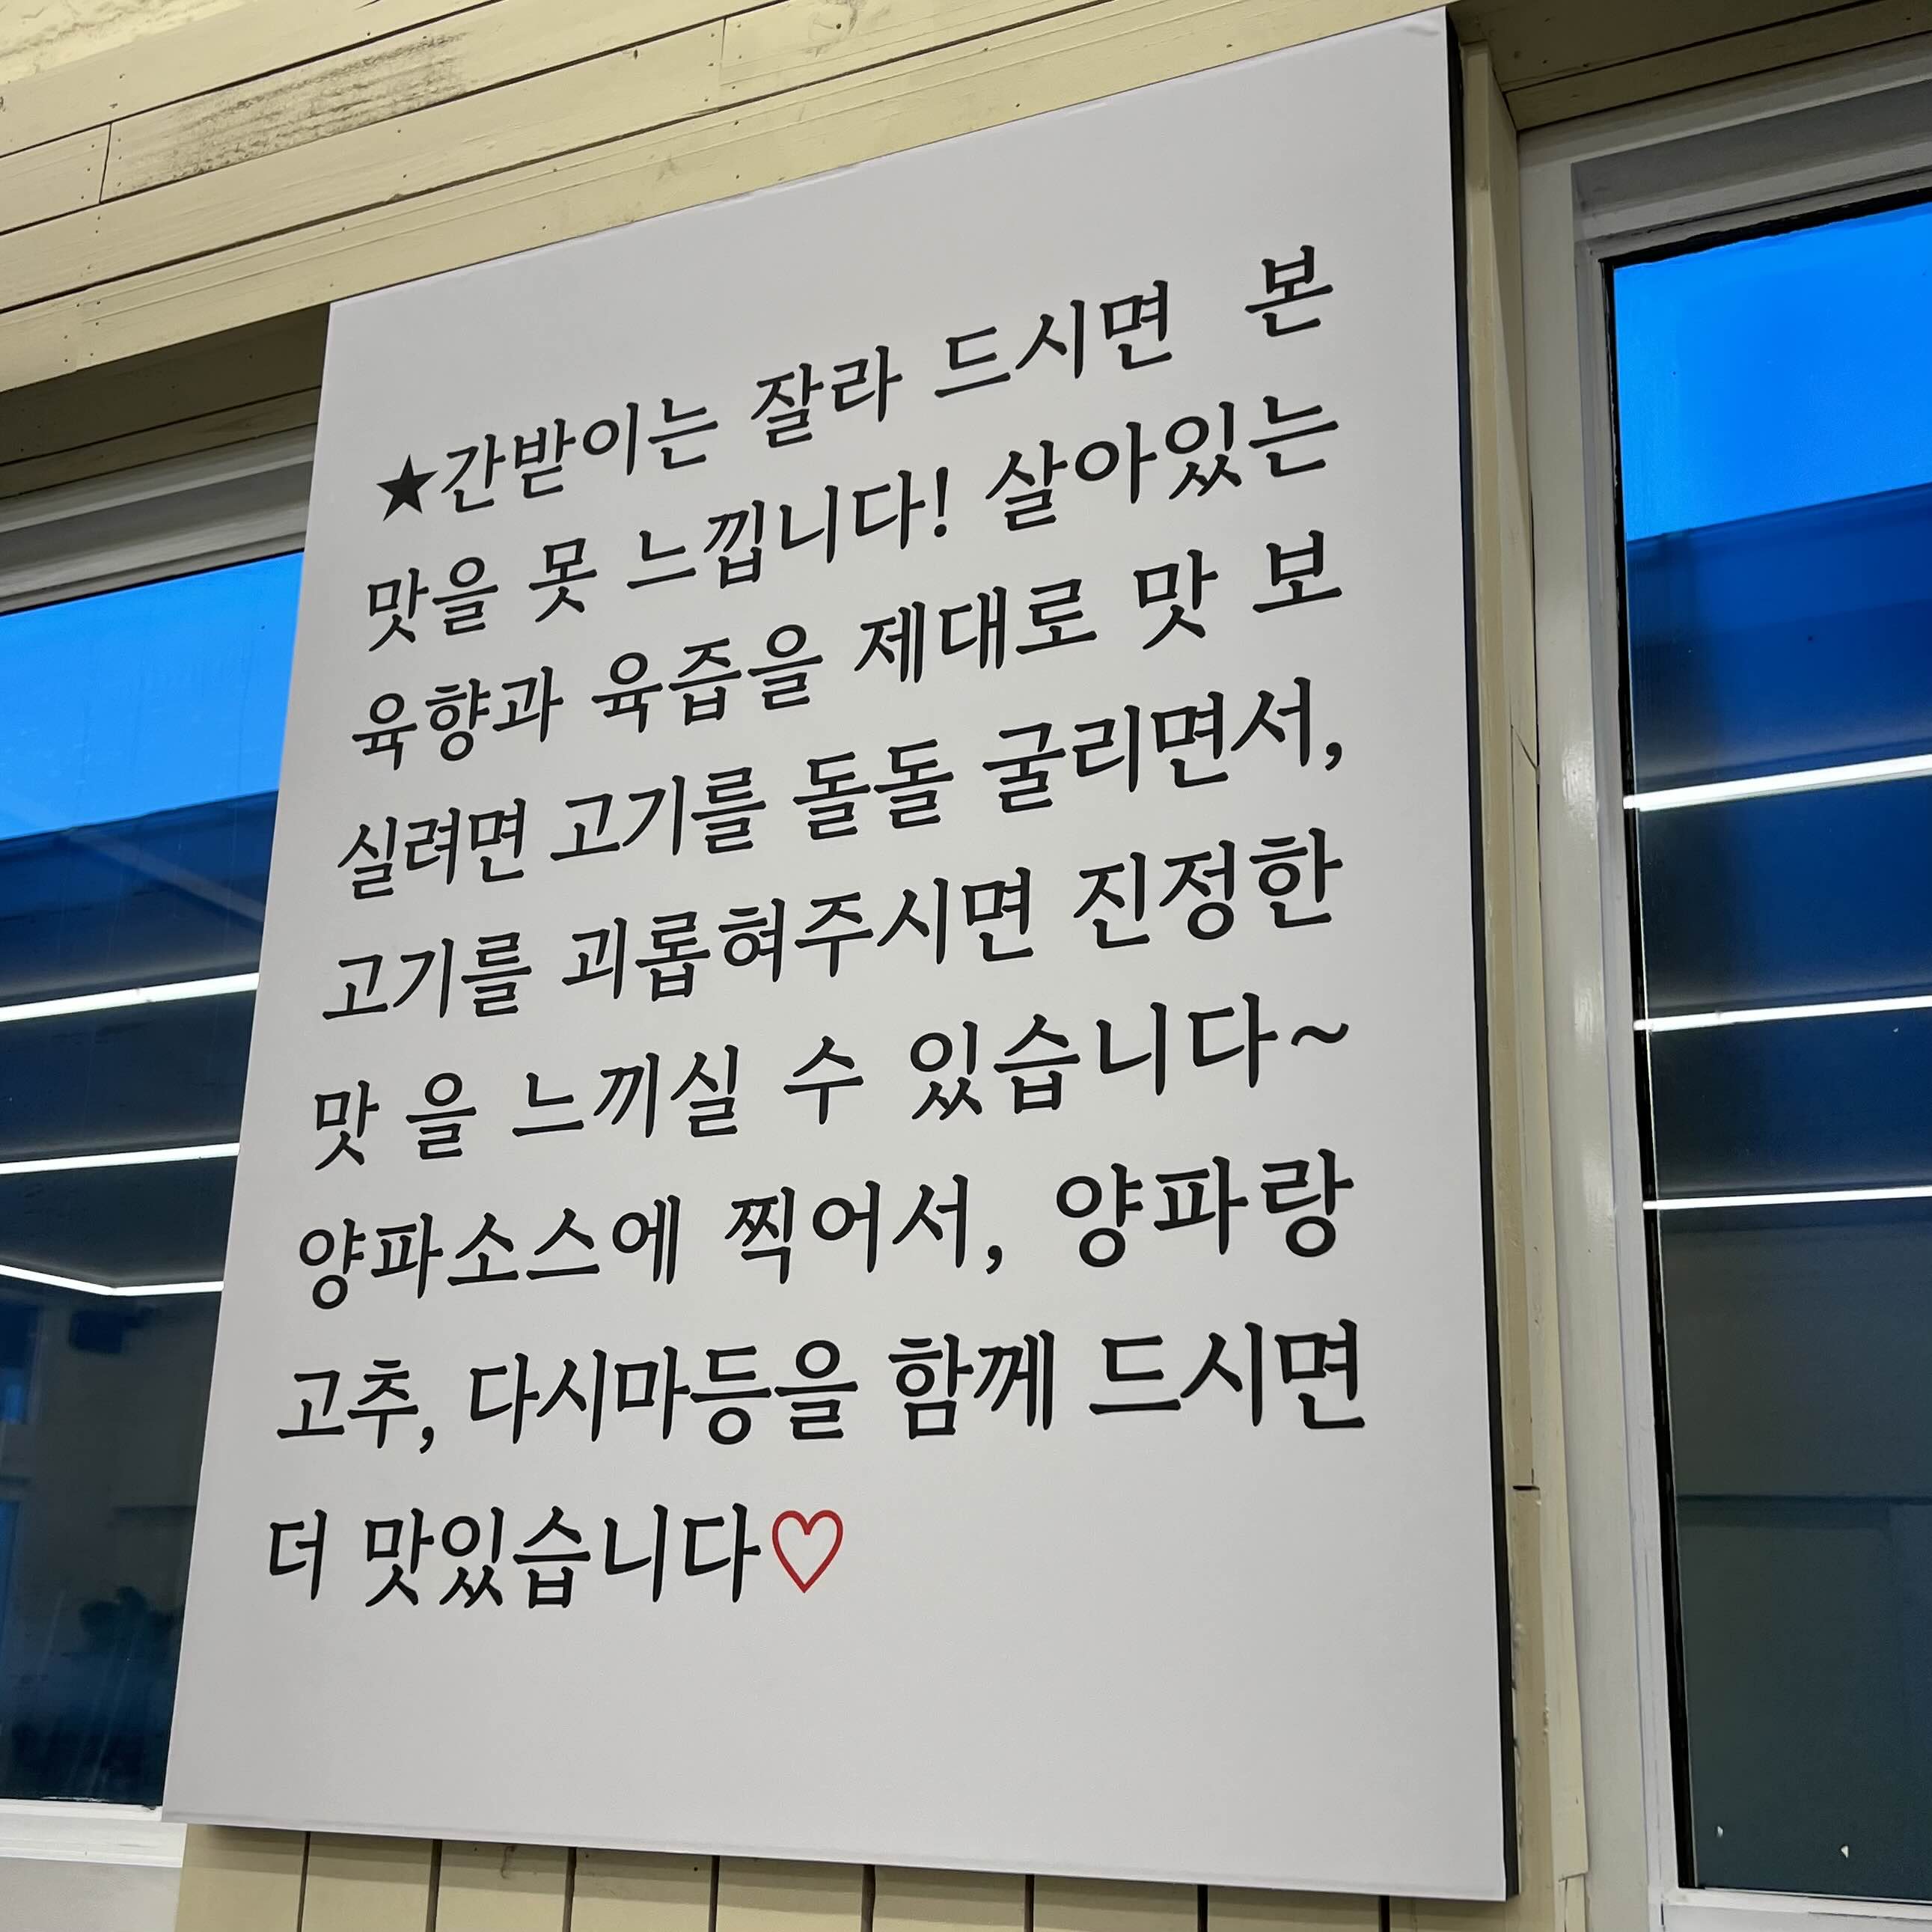 ★간받이는 잘라 드시면 본
맛을 못 느낍니다! 살아있는
육향과 육즙을 제대로 맛 보
실려면 고기를 돌돌 굴리면서,
고기를 괴롭혀주시면 진정한
맛 을 느끼실 수 있습니다~
양파소스에 찍어서, 양파랑
고추, 다시마등을 함께 드시면
더 맛있습니다♡